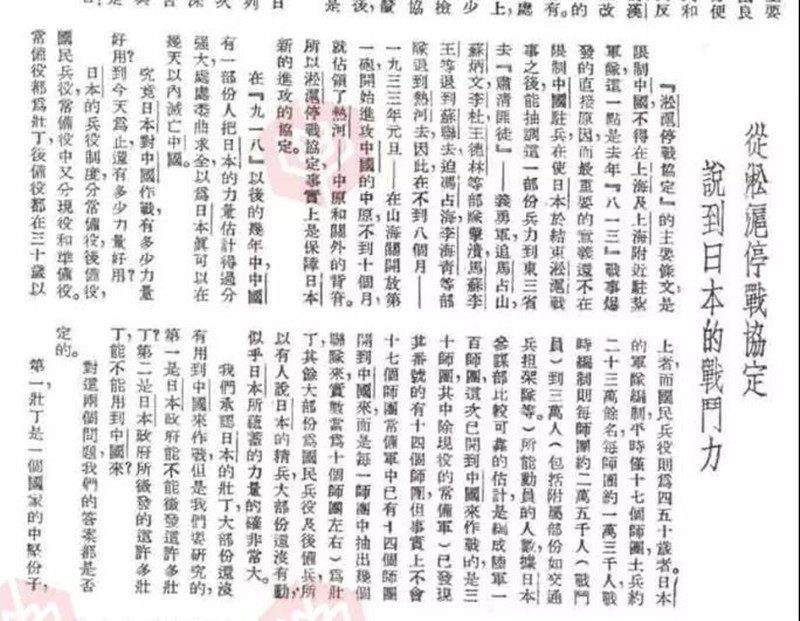 從淞滬停戰協定
說到日本的戰鬥力
『淞滬停戰協定』的主要條文,是
限制中國不得在上海及上海附近駐紮
軍隊,這一點是去年『八一三』戰事爆
發的直接原因,而最重要的意義還不在
限制中國駐兵,在使日本於結束淞滬戰
事之後,能抽調這一部份兵力到東三省
去『肅清匪徒』——義勇軍,追馬占山
蘇炳文李杜王德林等部隊,擊潰馬蘇李
王等退到蘇聯去,迫馮占海李海青等部
隊退到熱河去,因此在不到八個月——
一九三三年元旦——在山海關開放第
一砲,開始進攻中國的中原,不到十個月,
就佔領了熱河——中原和關外的脊。
所以淞滬停戰協定事實上是保障日本
新的進攻的協定。
在『九一八』以後的幾年中,中國
有一部份人把日本的力量估計得過分
強大,處處委曲求全,以爲日本眞可以在
幾天以內滅亡中國。
究竟日本對中國作戰,有多少力量
好用?到今天爲止,還有多少力量好用?
日本的兵役制度,分常備役,後備役,
國民兵役,常備役中又分現役和準備役。
常備役都爲壯丁,後備役都在三十歲以
上者,而國民兵役則爲四五十歲者。日本
的軍隊編制,平時僅十七個師團,士兵約
二十三萬餘名,每師團約一萬三千人,戰
時編制則每師團約二萬五千人(戰鬥
員)到三萬人(包括附屬部份如交通
兵担架隊等。)所能動員的人數,據日本
參謀部比較可靠的估計,是編成陸軍一
百師團,這次已開到中國來作戰的,是三
十師團,其中除現役的常備軍)已發現
其番號的有十四個師團,但事實上不會
十七個師團常備軍中已有十四個師團
開到中國來,而是每一師團中抽出幾個
聯隊來,實數當爲十個師團左右)爲壯
丁,其餘大部份爲國民兵役及後備兵,所
以有人說日本的精兵大部份還沒有動,
似乎日本所蘊蓄的力量的確非常大。
我們承認日本的壯丁大部份還沒
有用到中國來作戰,但是我們要研究的,
第一是日本政府能不能徵發這許多壯
丁?第二是日本政府所徵發的這許多壯
丁,能不能用到中國來?
對這兩個問題,我們的答案都是否
定的。
第一,壯丁是一個國家的中堅份子,